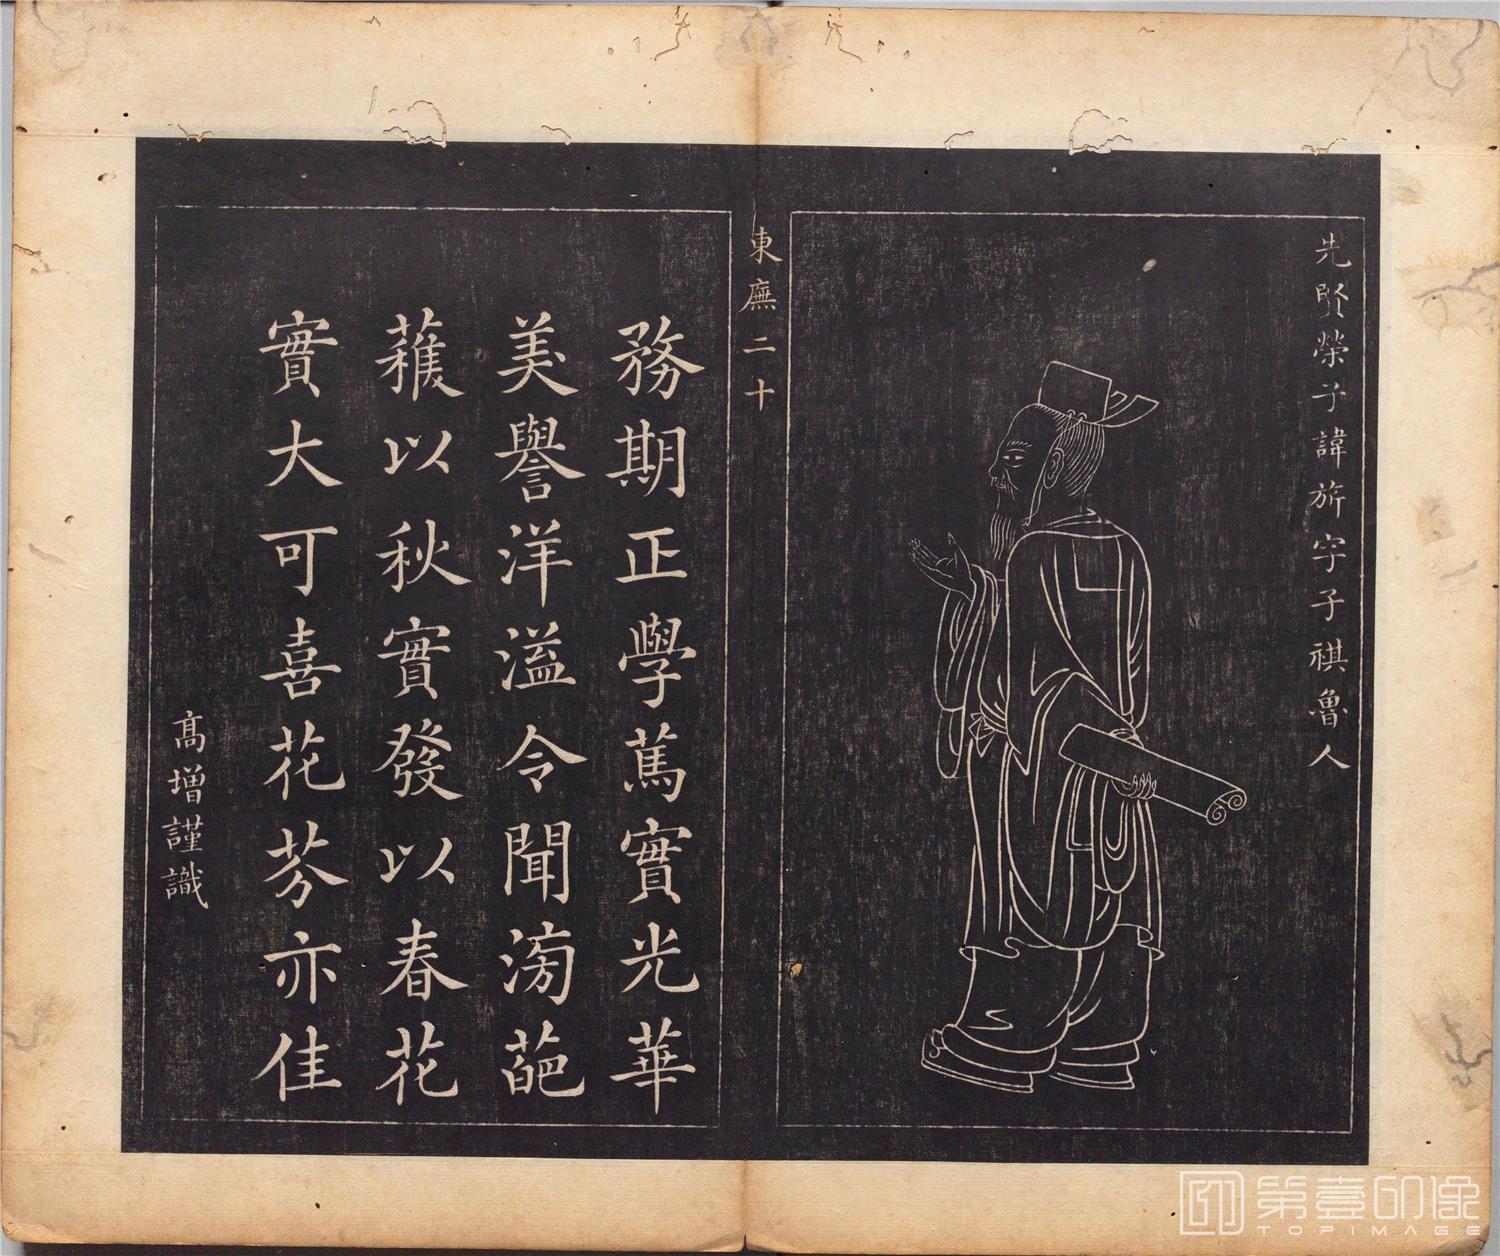 先賢榮子諱旂字子祺魯人
東廡二十
務期正學篤實光華
美譽洋溢令聞滂葩
蓛以秋實發以春花
實大可喜花芬亦佳
高增謹識
第壹印像
TOPIMAGE